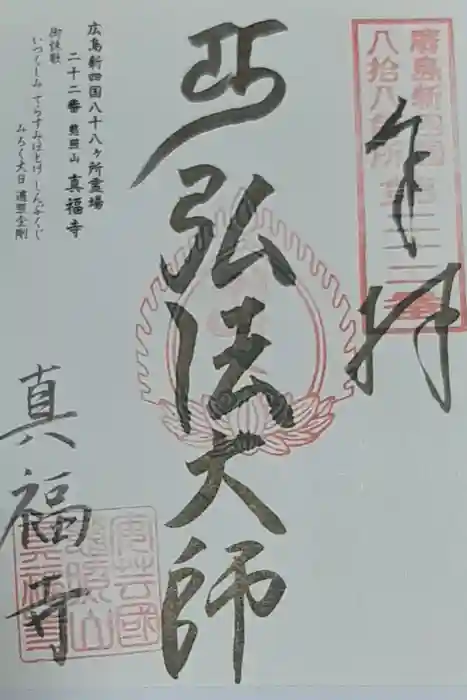 奉拝
廣島新四国
八拾八ヶ所第二十二番
弘法大師
広島新四国八十八ヶ所霊場
二十二番 慈照山 真福寺
御詠歌
いつくしみ てらすみほとけ しんぷくじ
みろく大日 遍照金剛
真福寺
安芸國
慈照山
真福寺